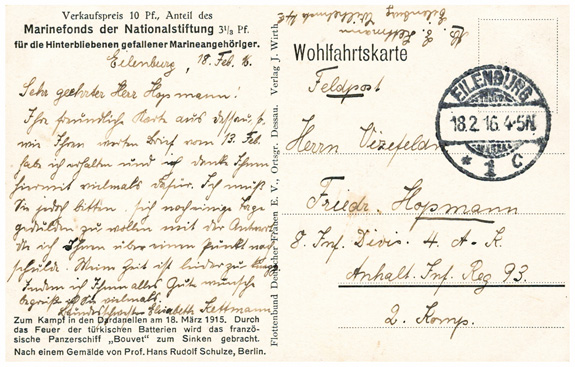 Verkaufspreis 10 Pf., Anteil des
Marinefonds der Nationalstiftung 3⅓ Pf.
für die Hinterbliebenen gefallener Marineangehöriger.
Eilenburg, 18. Feb. 16.
Sehr geehrter Herr Hopmann!
Ihre freundliche Karte aus Dessau, so-
wie Ihren werten Brief vom 13. Feb.
hab ich erhalten und ich danke Ihnen
hiermit vielmals dafür. Ich muß
Sie jedoch bitten, sich noch einige Tage
gedulden zu wollen mit der Antwort,
die ich Ihnen über einen Punkt noch
schulde. Meine Zeit ist leider zu knapp
Indem ich Ihnen alles Gute wünsche
vielmals
Elisabeth Kettmann
Zum Kampf in den Dardanellen am 18. März 1915. Durch
das Feuer der türkischen Batterien wird das franzö-
sische Panzerschiff „Bouvet" zum Sinken gebracht.
Nach einem Gemälde von Prof. Hans Rudolf Schulze, Berlin.
Flottenbund Deutscher Frauen E. V., Ortsgr. Dessau. Verlag J. Wirth,
Kettmann
Eilenburg
Wohlfahrtskarte
Feldpost
EILENBURG
18.2.16. 4-5N
* 1 c
Herrn Vizefeldw.
Friedr. Hopmann
8. Inf. Divis. 4. A. K.
Anhalt. Inf. Reg 93.
2. Komp.